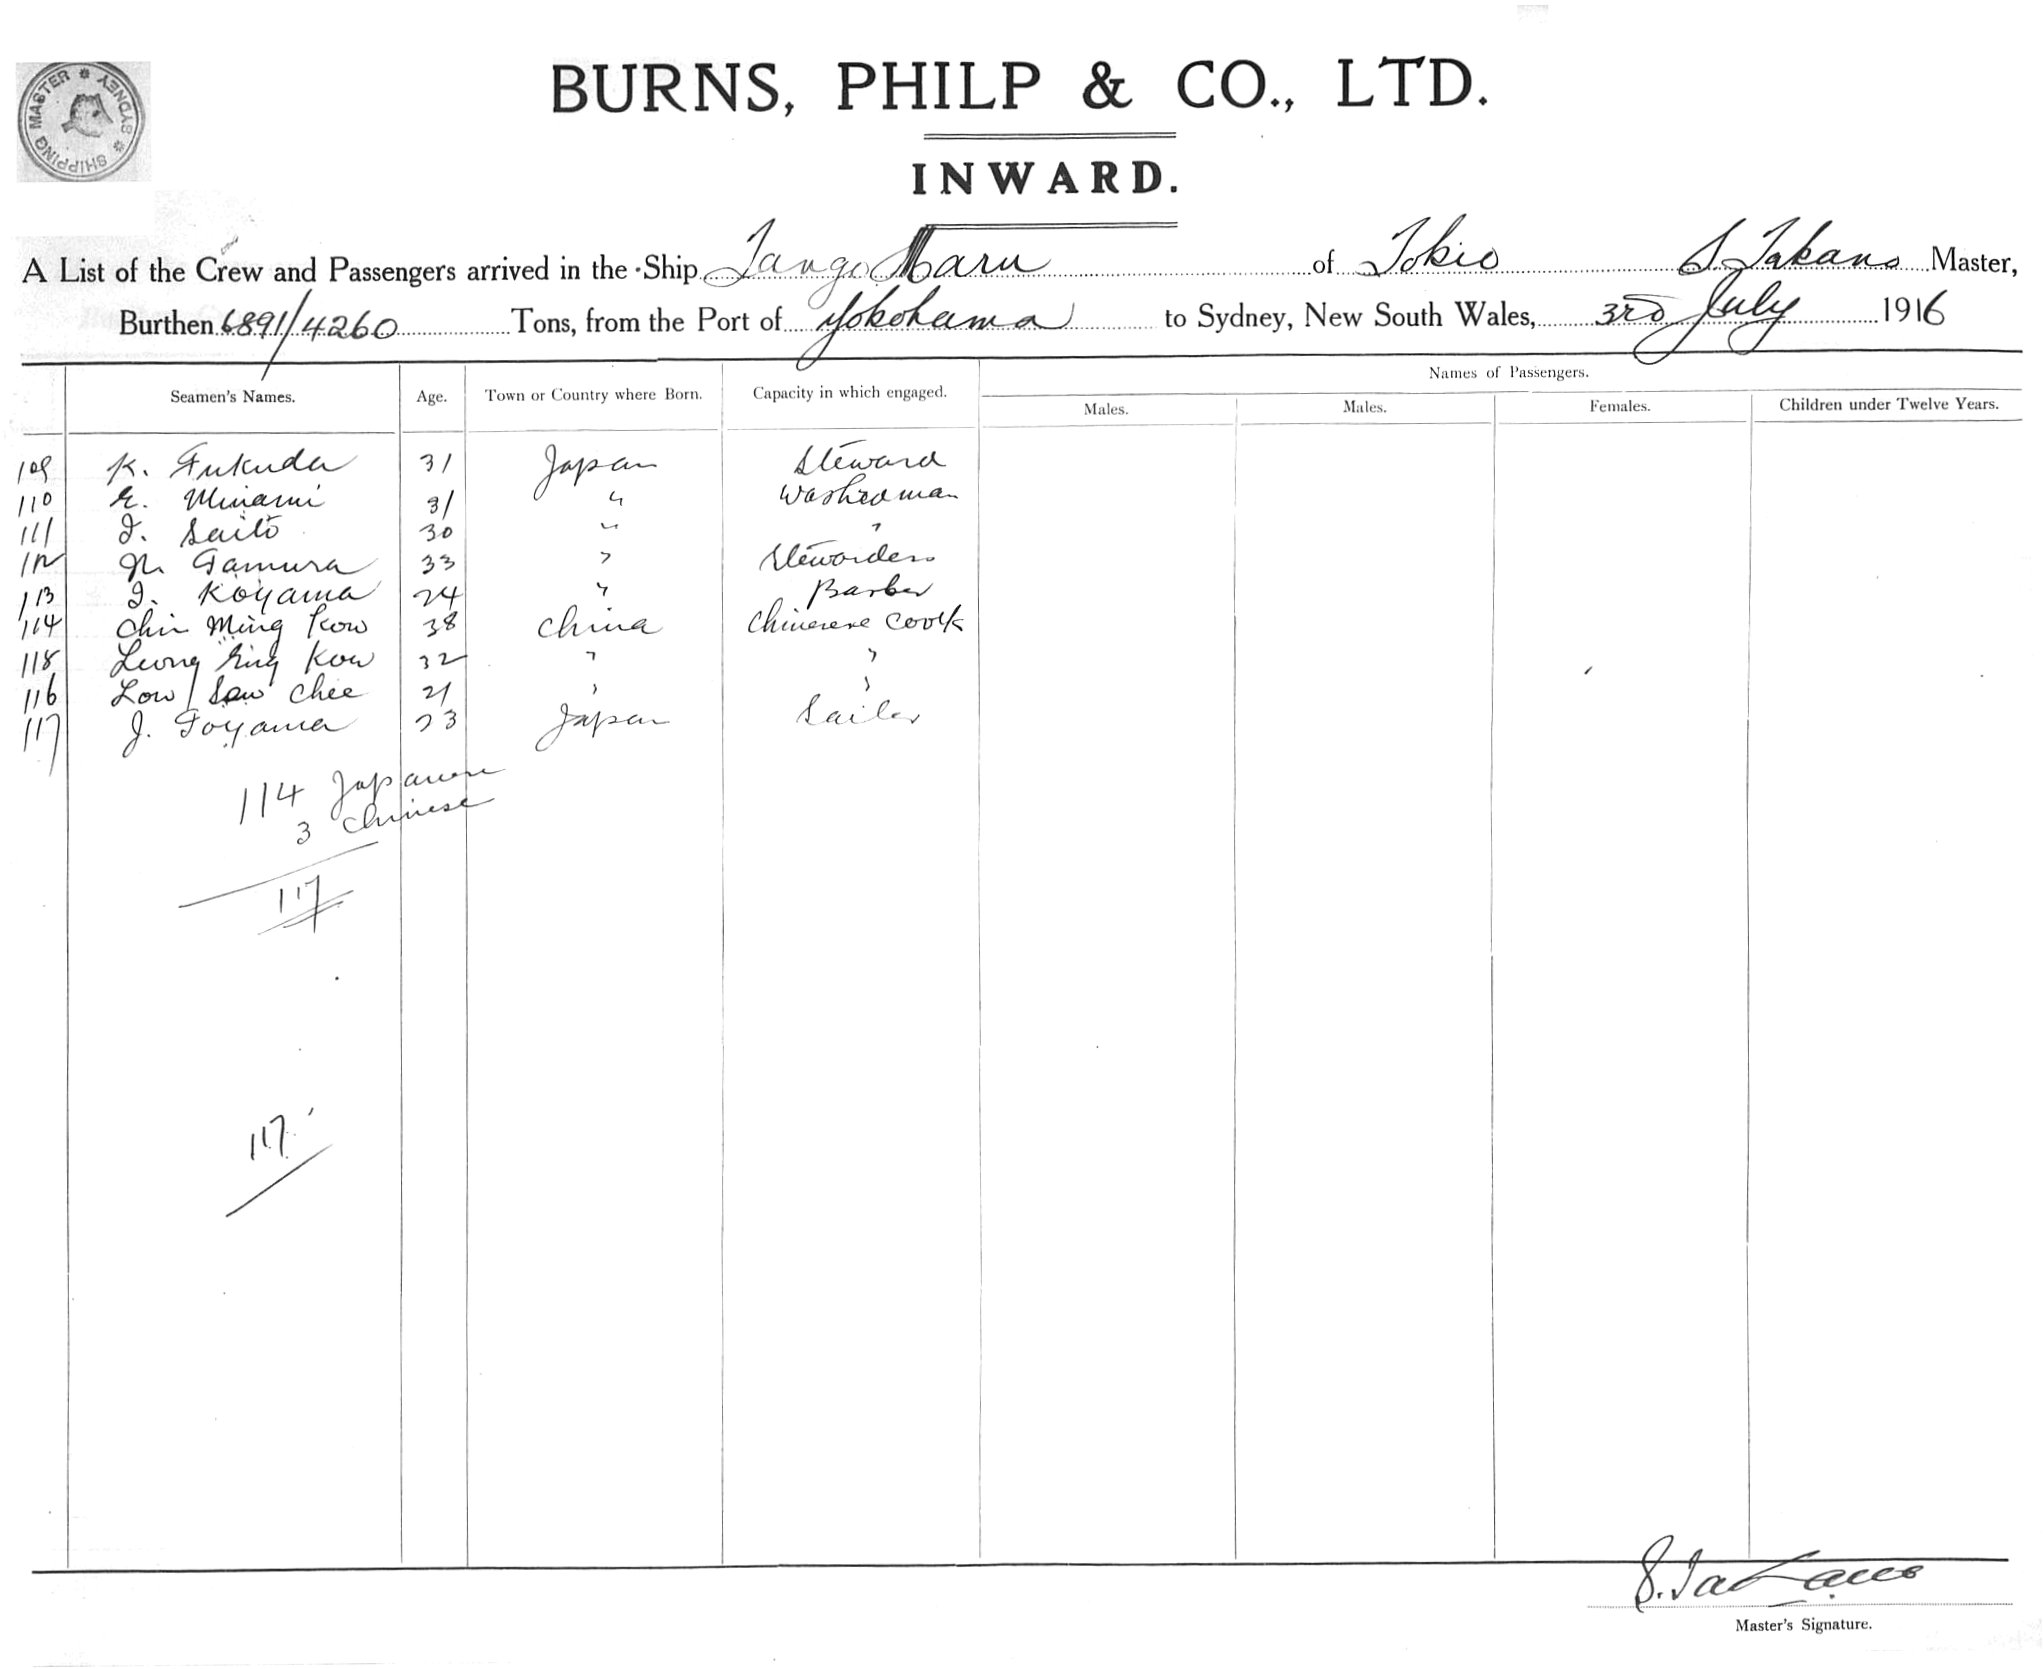 SHIPPING MASTER * SYDNEY *
BURNS, PHILP & CO., LTD.
INWARD.
A List of the Crew and Passengers arrived in the Ship Tango Maru of Tokio S. Takano Master,
Burthen 6891/4260 Tons, from the Port of Yokohama to Sydney, New South Wales, 3RD July 1916
Names of Passengers.
Seamen's Names. Age. Town or Country where Born. Capacity in which engaged. Males. Males. Females. Children under Twelve Years.
109 K. Fukuda 31 Japan Steward
110 E. Minami 31 " Washedman
111 I. Saito 30 " "
112 N. Tamura 33 " Stewardess
113 I. Koyama 24 " Barber
114 Chin Ming Kow 38 China Chinese Cook
115 Leong King Kow 32 " "
116 Low Saw Chee 21 " "
117 J. Toyama 23 Japan Sailor
114 Japanese
3 Chinese
117
117
S. Takano
Master's Signature.